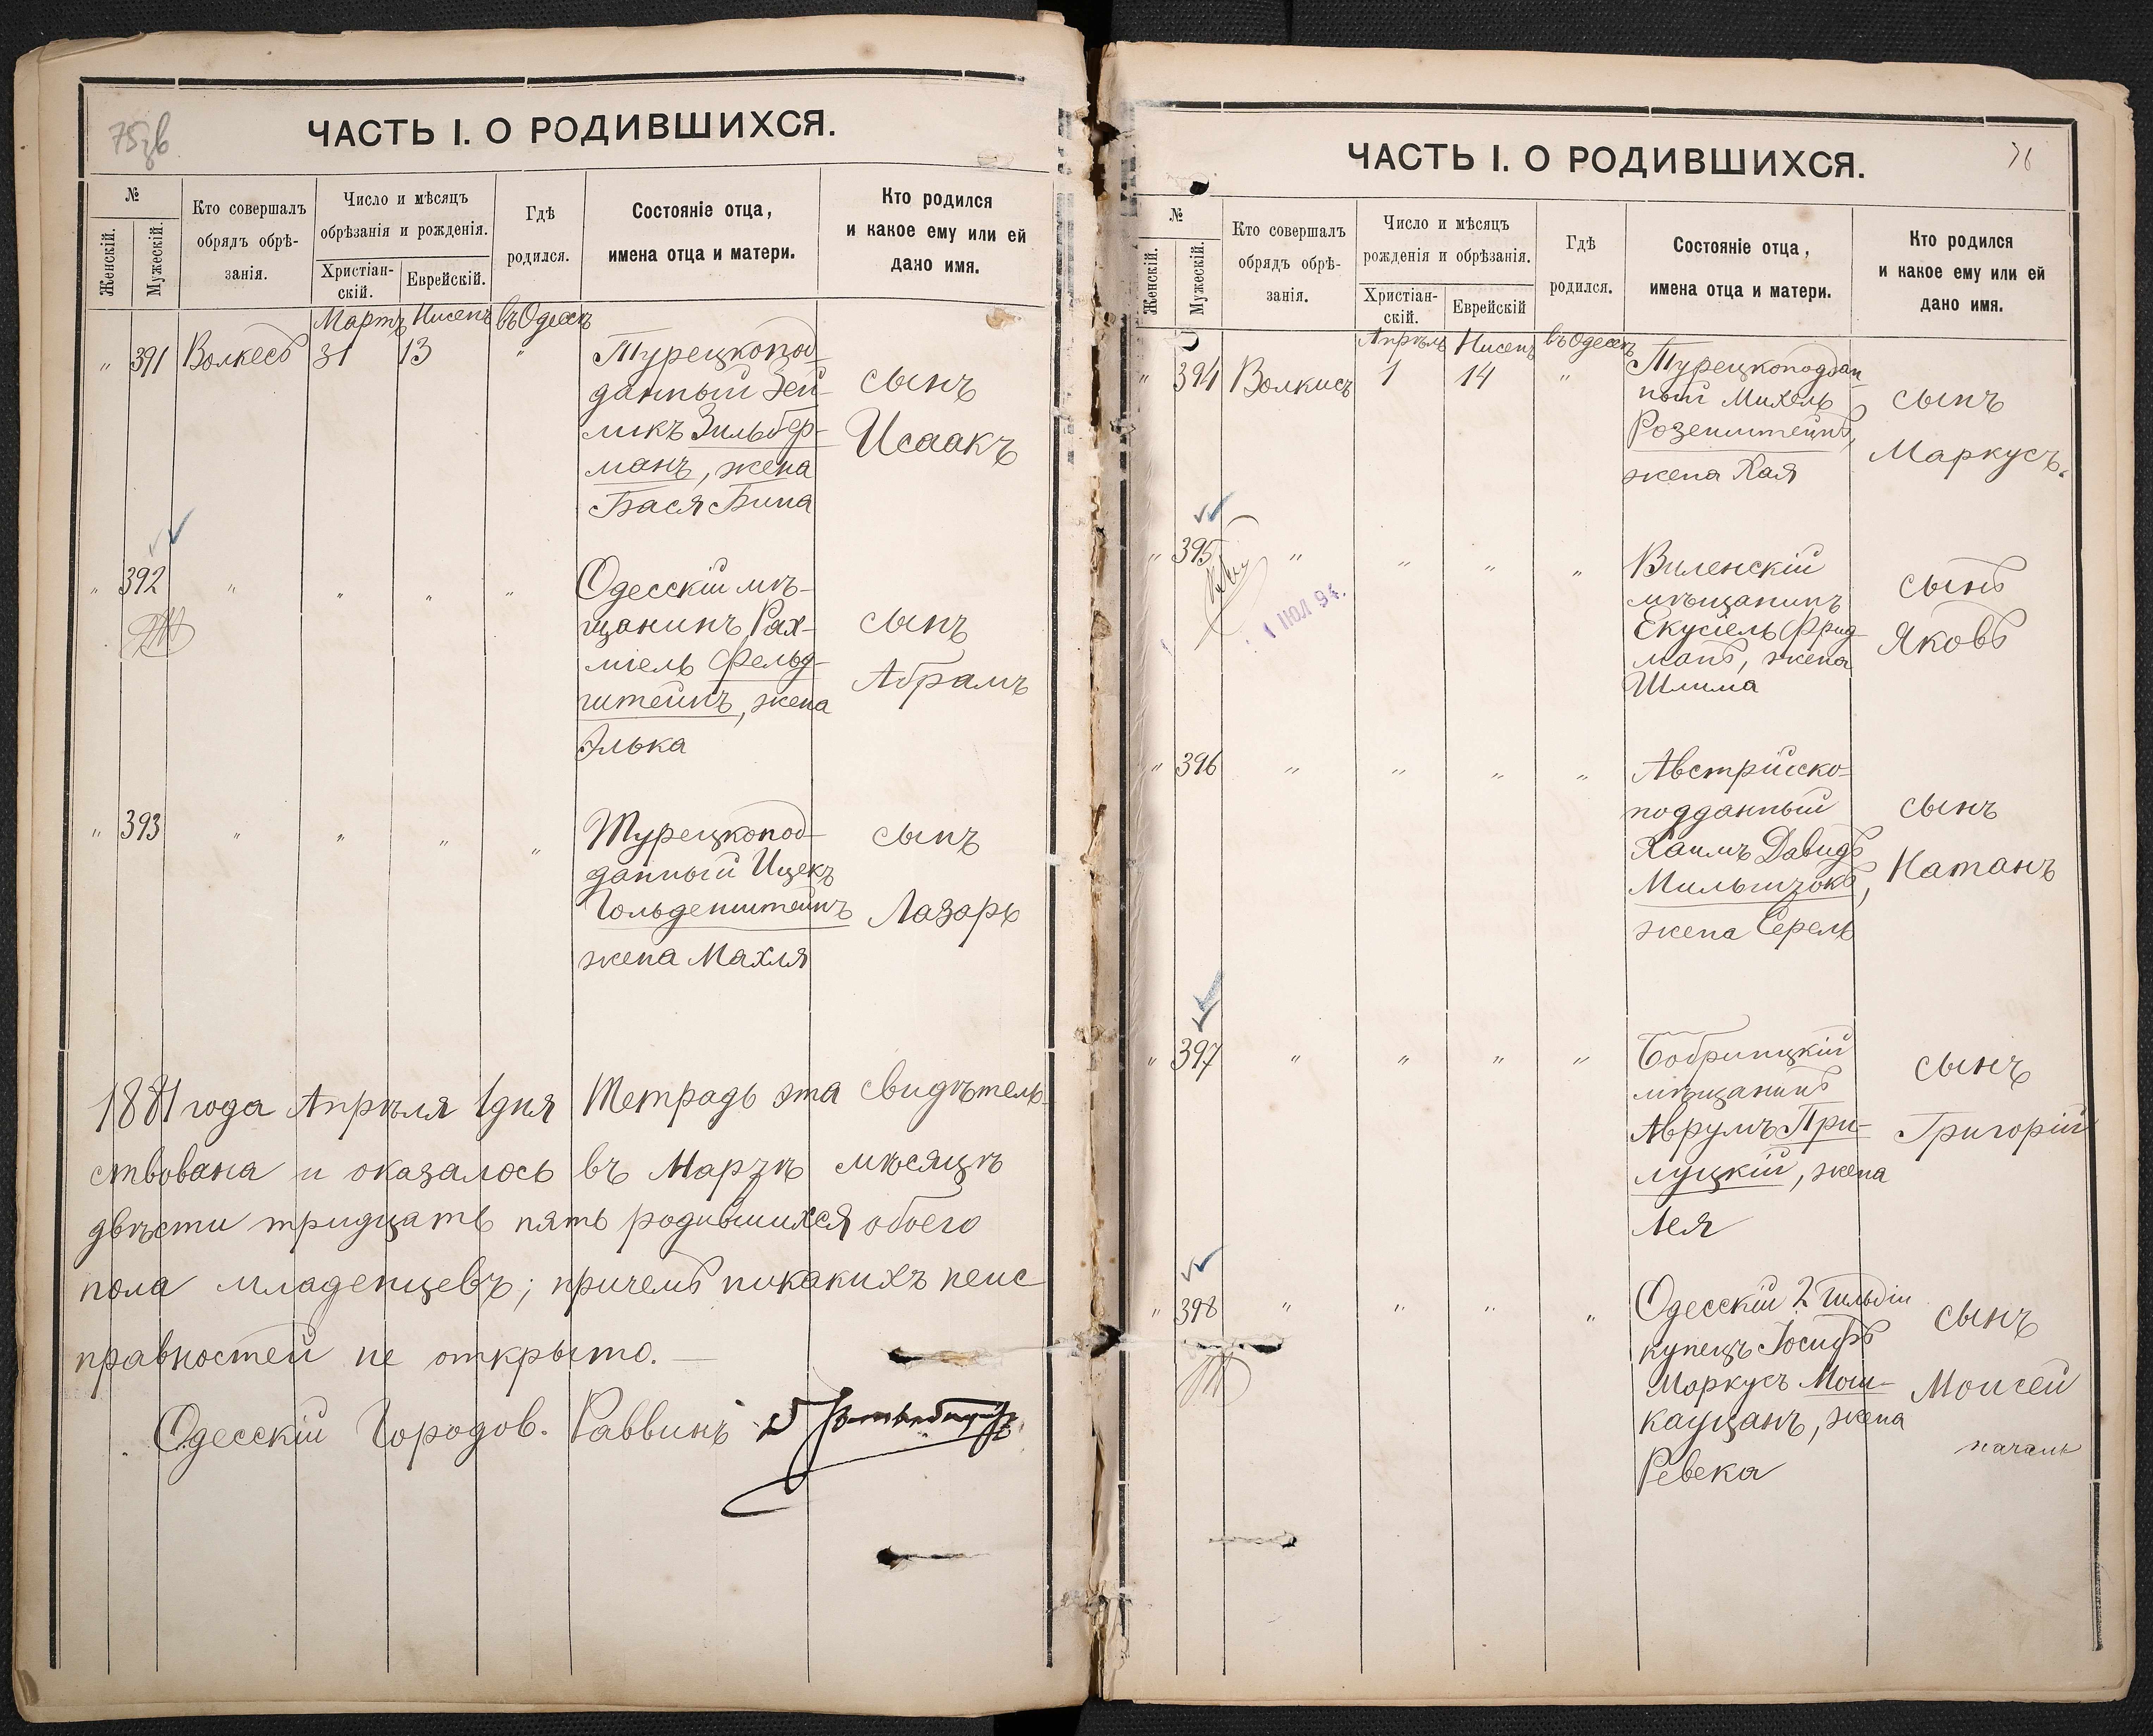 75 зв
ЧАСТЬ I. О РОДИВШИХСЯ.
№
Женскій.
Мужескій.
Кто совершалъ
обрядъ обрѣ-
занія.
Число и мѣсяцъ
обрѣзанія и рожденія.
Христіан-
скій.
Еврейскій.
Гдѣ
родился.
Состояніе отца,
имена отца и матери.
Кто родился
и какое ему или ей
дано имя.
Мартъ Нисенъ въ Одессѣ
" 391 Волкесъ 31 13 " Турецкопод-
данный Зей-
ликъ Зильбер-
манъ, жена
Бася Бина
сынъ
Исаакъ
" 392 " " " " Одесскій мѣ-
щанинъ Рах-
міель Фельд-
штейнъ, жена
Элька
сынъ
Абрамъ
" 393 " " " " Турецкопод-
данный Ицекъ
Гольденштейнъ
жена Махля
сынъ
Лазарь
1881 года Апрѣля 1 дня Тетрадь эта свидѣтель-
ствована и оказалось въ Марзѣ мѣсяцѣ
двѣсти тридцать пять родившихся обоего
пола младенцевъ; причемъ никакихъ неис
правностей не открыто. —
Одесскій Городов. Раввинъ
76
ЧАСТЬ I. О РОДИВШИХСЯ.
№
Женскій.
Мужескій.
Кто совершалъ
обрядъ обрѣ-
занія.
Число и мѣсяцъ
рожденія и обрѣзанія.
Христіан-
скій.
Еврейскій
Гдѣ
родился.
Состояніе отца,
имена отца и матери.
Кто родился
и какое ему или ей
дано имя.
Апрѣль Нисенъ въ Одессѣ
" 394 Волкисъ 1 14 " Турецкоподдан
ный Михель
Розенштейнъ,
жена Хая
сынъ
Маркусъ.
" 395 " " " " Виленскій
мѣщанинъ
Екусіель Фрид-
манъ, жена
Шлима
сынъ
Яковъ
1 ІЮЛ 94.
" 396 " " " " Австрійско-
подданный
Хаимъ Давидъ
Мильштокъ,
жена Серель
сынъ
Натанъ
" 397 " " " " Бобринцкій
мѣщанинъ
Аврумъ При-
луцкій, жена
Лея
сынъ
Григорій
" 398 " " " " Одесскій 2 гильдіи
купецъ Іосифъ
Маркусъ Мош-
кауцанъ, жена
Ревека
сынъ
Моисей